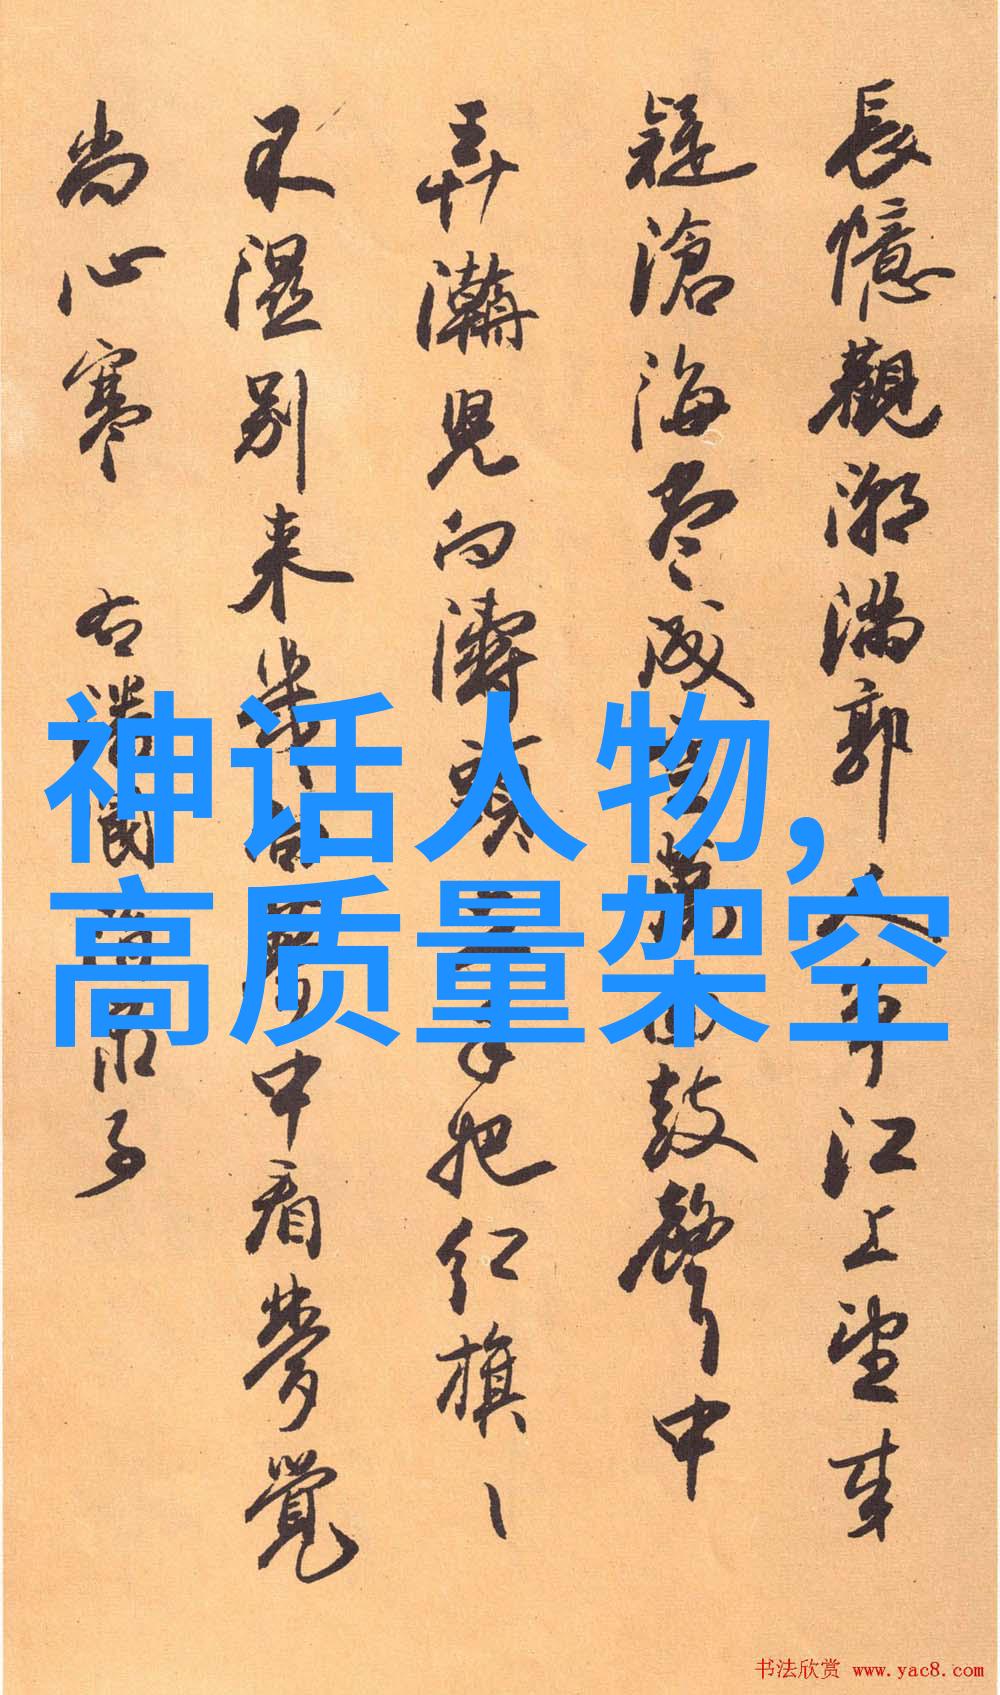 長憶觀潮滿郭人争江上望来
疑滄海盡成空萬面鼓聲中
弄濤兒向濤頭立手把紅旗旗
不濕別来幾向夢中看夢覺
尚心寒 右潘閬酒泉子
神话人物,
高质量架空
书法欣赏 www.yac8.com